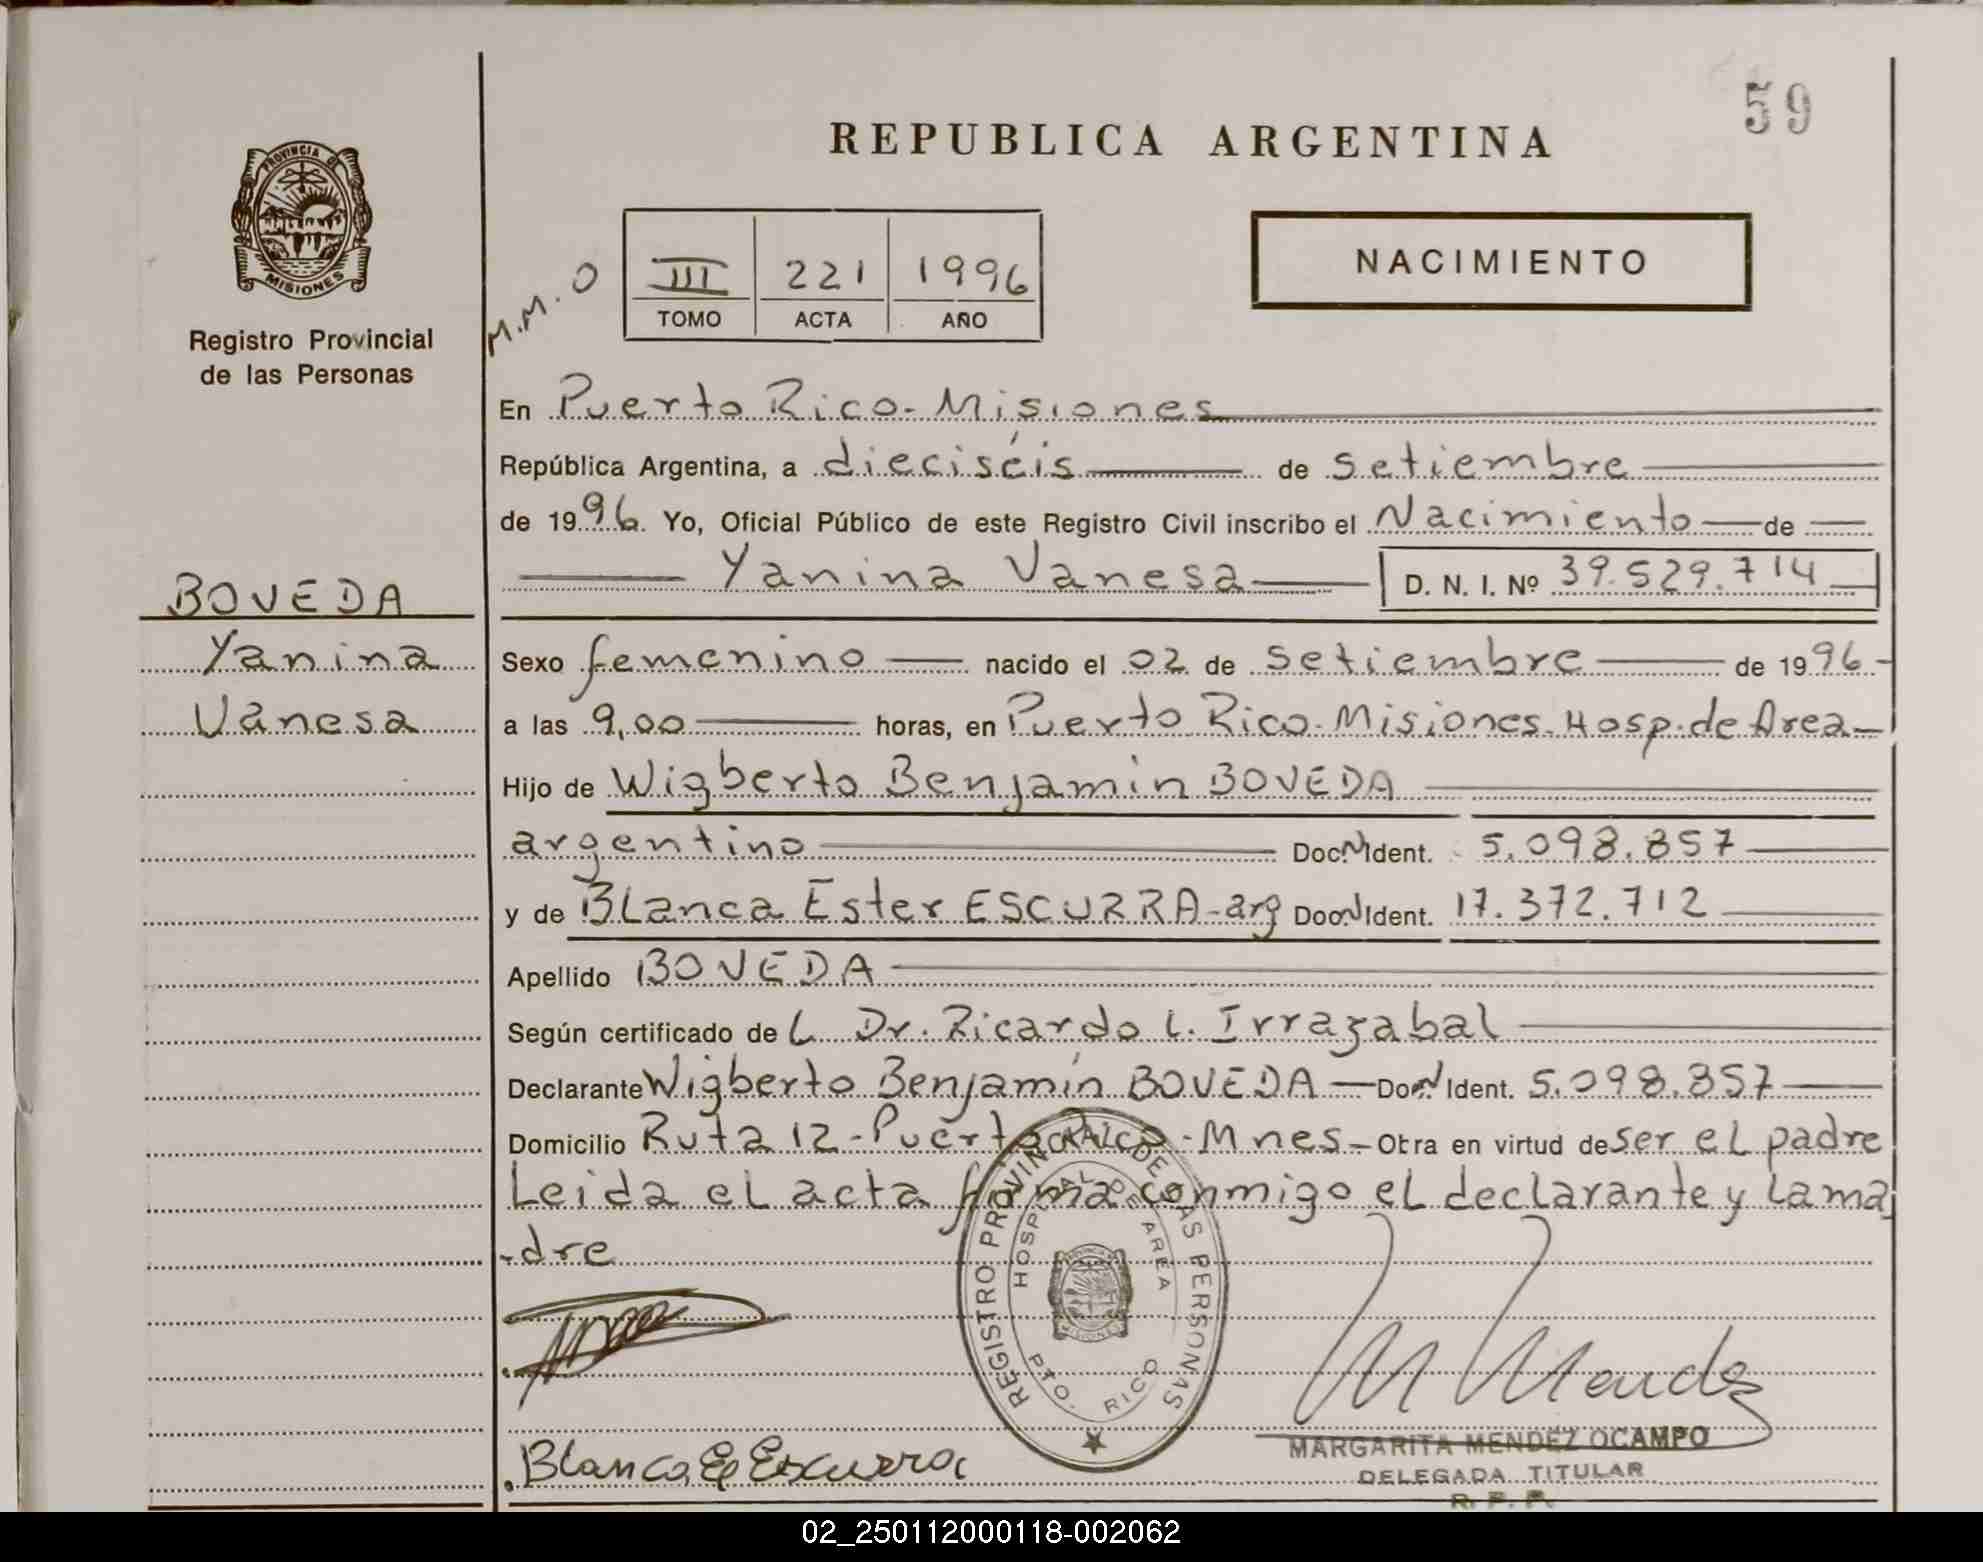 59
REPUBLICA ARGENTINA
PROVINCIA DE
MISIONES
Registro Provincial
de las Personas
M.M.O
III 221 1996
TOMO ACTA AÑO
NACIMIENTO
En Puerto Rico.Misiones
República Argentina, a dieciséis de setiembre
de 1996. Yo, Oficial Público de este Registro Civil inscribo el Nacimiento de
Yanina Vanesa D. N. I. Nº 39.529.714
BOVEDA
Yanina
Vanesa
Sexo femenino nacido el 02 de setiembre de 1996
a las 9,00 horas, en Puerto Rico.Misiones.Hosp.de Area
Hijo de Wigberto Benjamin BOVEDA
argentino Doc. N Ident. 5.098.857
y de Blanca Ester ESCURRA-arg Doc. N Ident. 17.372.712
Apellido BOVEDA
Según certificado de L Dr. Ricardo L. Irrazabal
Declarante Wigberto Benjamín BOVEDA Doc. N Ident. 5.098.857
Domicilio Ruta 12-Puerto Rico-Mnes- Obra en virtud de ser el padre
Leida el acta firma conmigo el declarante y la ma
-dre
REGISTRO PROVINCIAL DE LAS PERSONAS
HOSPITAL DE AREA
PTO. RICO
Blanca E Escurra
M Mendez
MARGARITA MENDEZ OCAMPO
DELEGADA TITULAR
R. P. P.
02_250112000118-002062